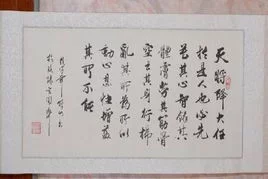 天将降大任
於是人也必先
苦其心智餓其
體膚勞其筋骨
空乏其身行拂
亂其所為所以
動心忍性增益
其所不能